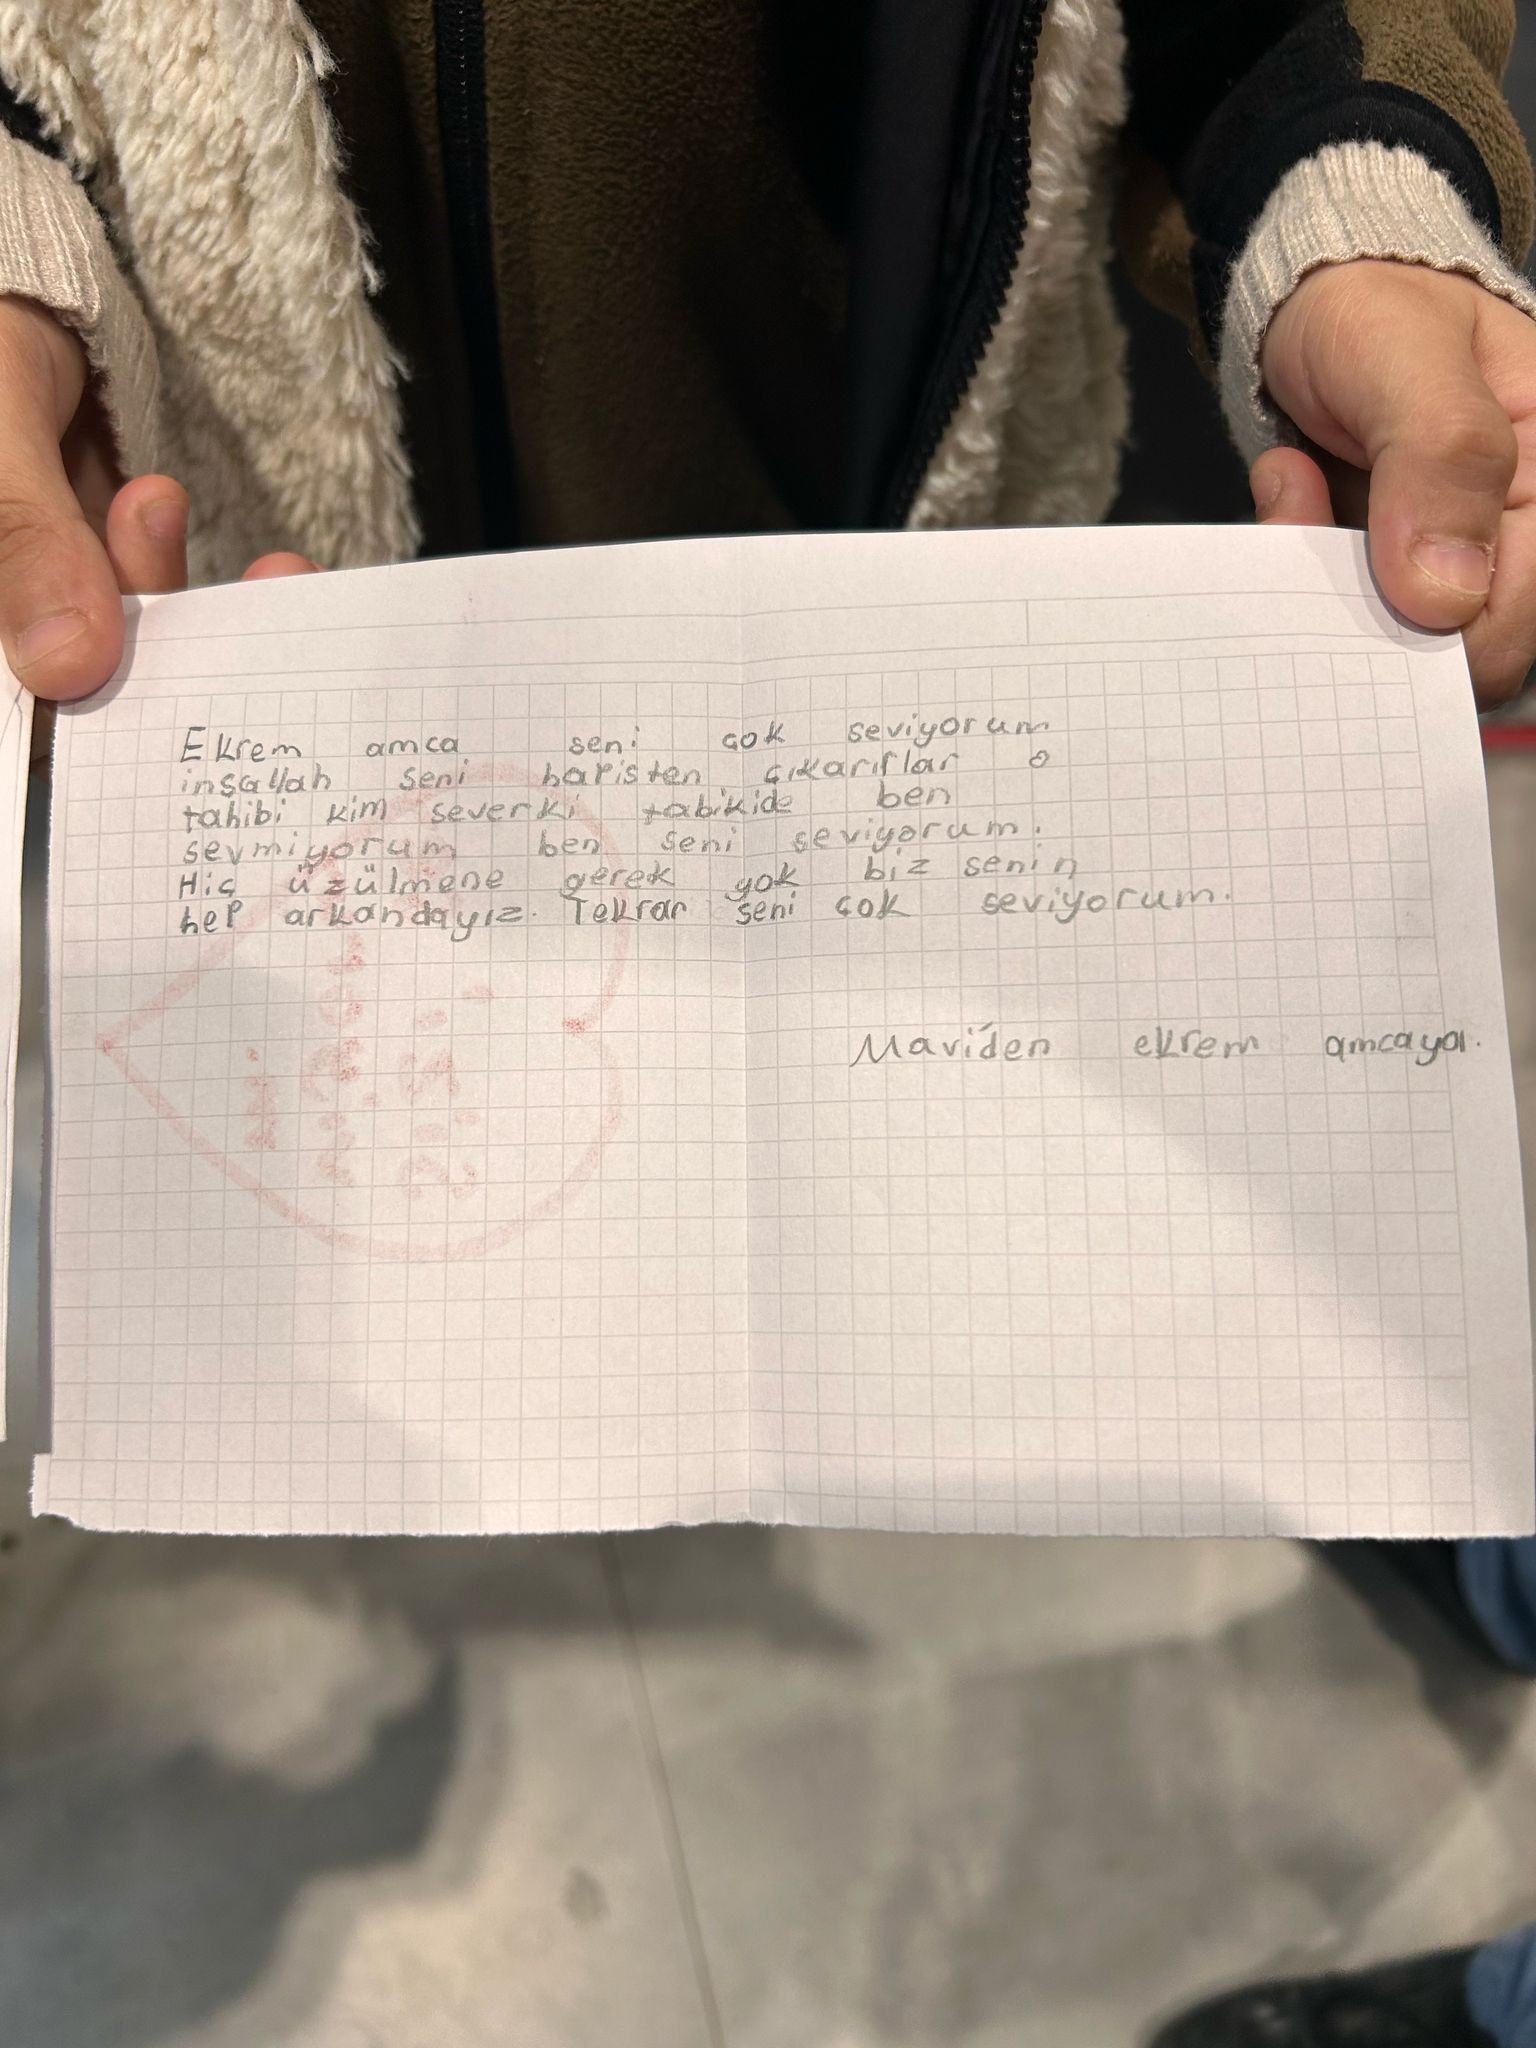 Ekrem amca seni çok seviyorum
inşallah seni hapisten çıkarırlar o
tahibi kim severki tabikide ben
sevmiyorum ben seni seviyorum.
Hiç üzülmene gerek yok biz senin
hep arkandayız. Tekrar seni çok seviyorum.
Mavi'den ekrem amcaya.